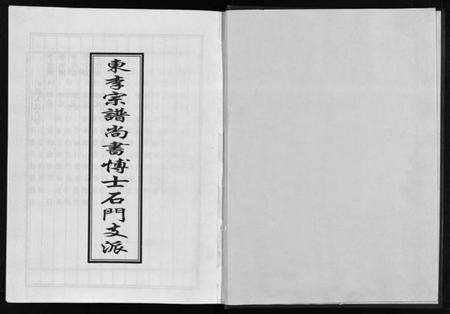 東李宗譜尚書博士石門支派